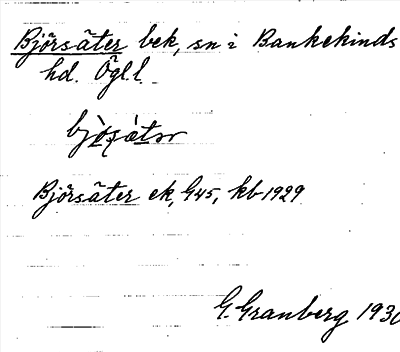 Björsäter bek, sn i Bankekinds
hd. Ögl. l.
Björsäter ek, G45, kb 1929
G. Granberg